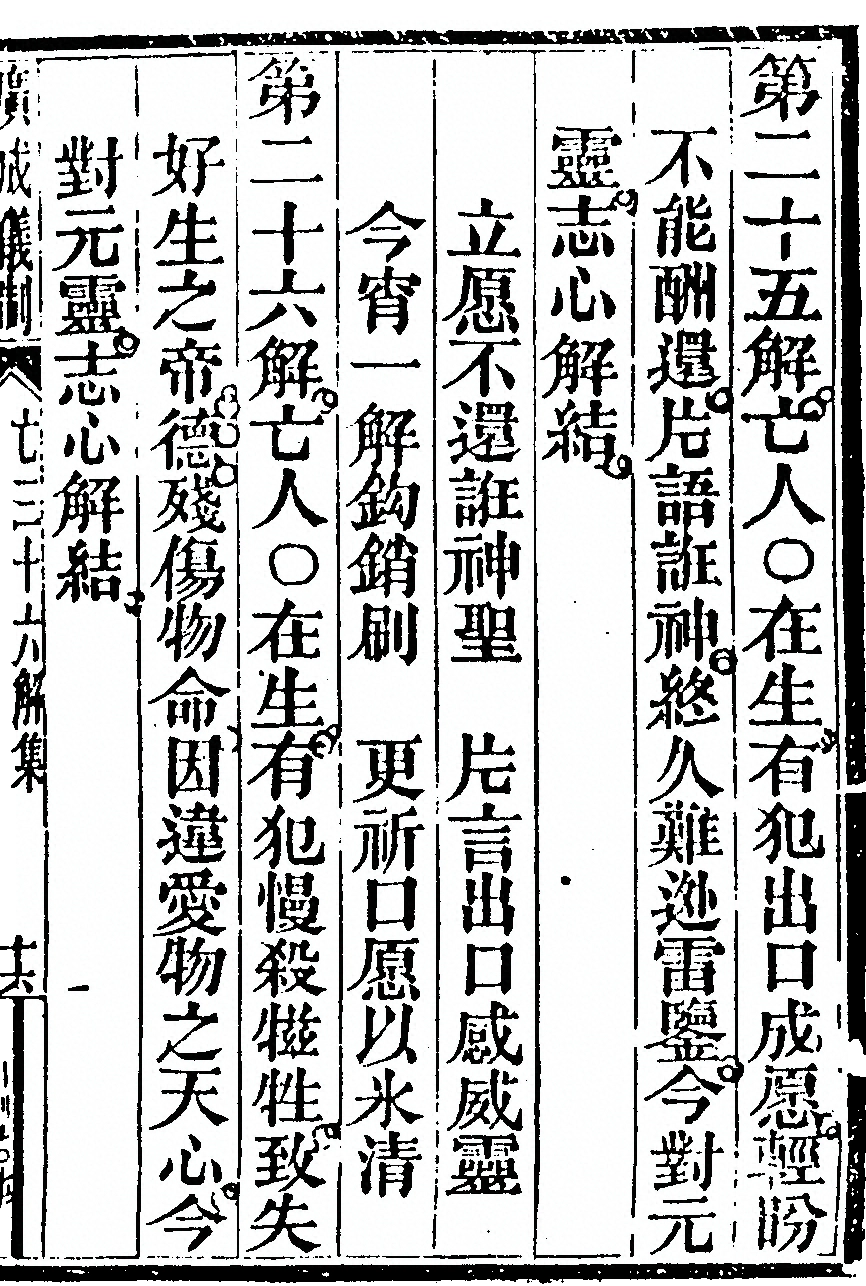 第二十五解亡人〇在生有犯出口成愿輕盼
不能酬還片語誑神終久難逊雷鑒今對元
靈志心解結
立愿不還誑神聖　片言出口感威靈
今宵一解鈎銷刷　更祈口愿以氷清
第二十六解亡人〇在生有犯慢殺犧牲致失
好生之帝德殘傷物命因違愛物之天心今
對元靈志心解結
廣成儀制　七三十六解集　十六